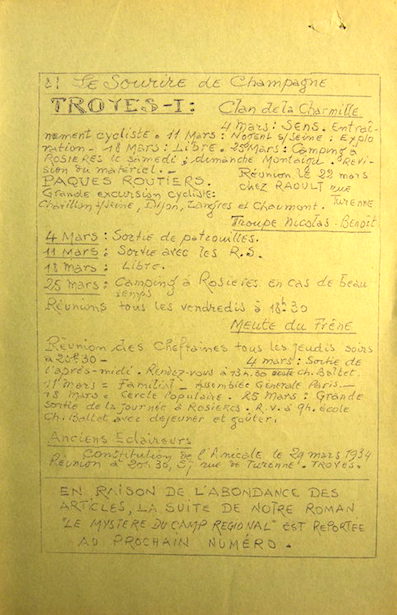 Le Sourire de Champagne
TROYES-I: Clan de la Charmille
4 mars: SENS. Entraî-
nement cycliste. 11 Mars: Nogent s/Seine: Explo
ration - 18 Mars: Libre. 25 Mars: Camping à
ROSIERES le samedi; dimanche Montaigu. Révi-
sion du matériel. -
Réunion le 22 mars
PAQUES ROUTIERS. chez RAOULT rue
Grande excursion cycliste: Turenne
Chatillon s/Seine, Dijon, Langres et Chaumont.
Troupe Nicolas-Benoît
4 Mars: Sortie de patrouilles.
11 Mars: Sortie avec les R.S.
18 Mars: Libre.
25 mars: Camping à Rosieres en cas de beau
temps
Réunions tous les vendredis à 18h30
Meute du Frêne
Réunion des Cheftaines tous les jeudis soirs
à 20h30 -
4 mars: Sortie de
l'après-midi. Rendez-vous à 13h.30 école Ch. Baltet.
11 mars = Familial - Assemblée Générale Paris -
18 mars = Cercle populaire. 25 Mars: Grande
sortie de la journée à Rosieres. R.V. à 9h. école
Ch. Baltet avec déjeuner et goûter.
Anciens Eclaireurs
Constitution de l'Amicale le 29 mars 1934
Réunion à 20h.30, 5, rue de Turenne. TROYES.
EN RAISON DE L'ABONDANCE DES
ARTICLES, LA SUITE DE NOTRE ROMAN
"LE MYSTERE DU CAMP REGIONAL" EST REPORTEE
AU PROCHAIN NUMÉRO.